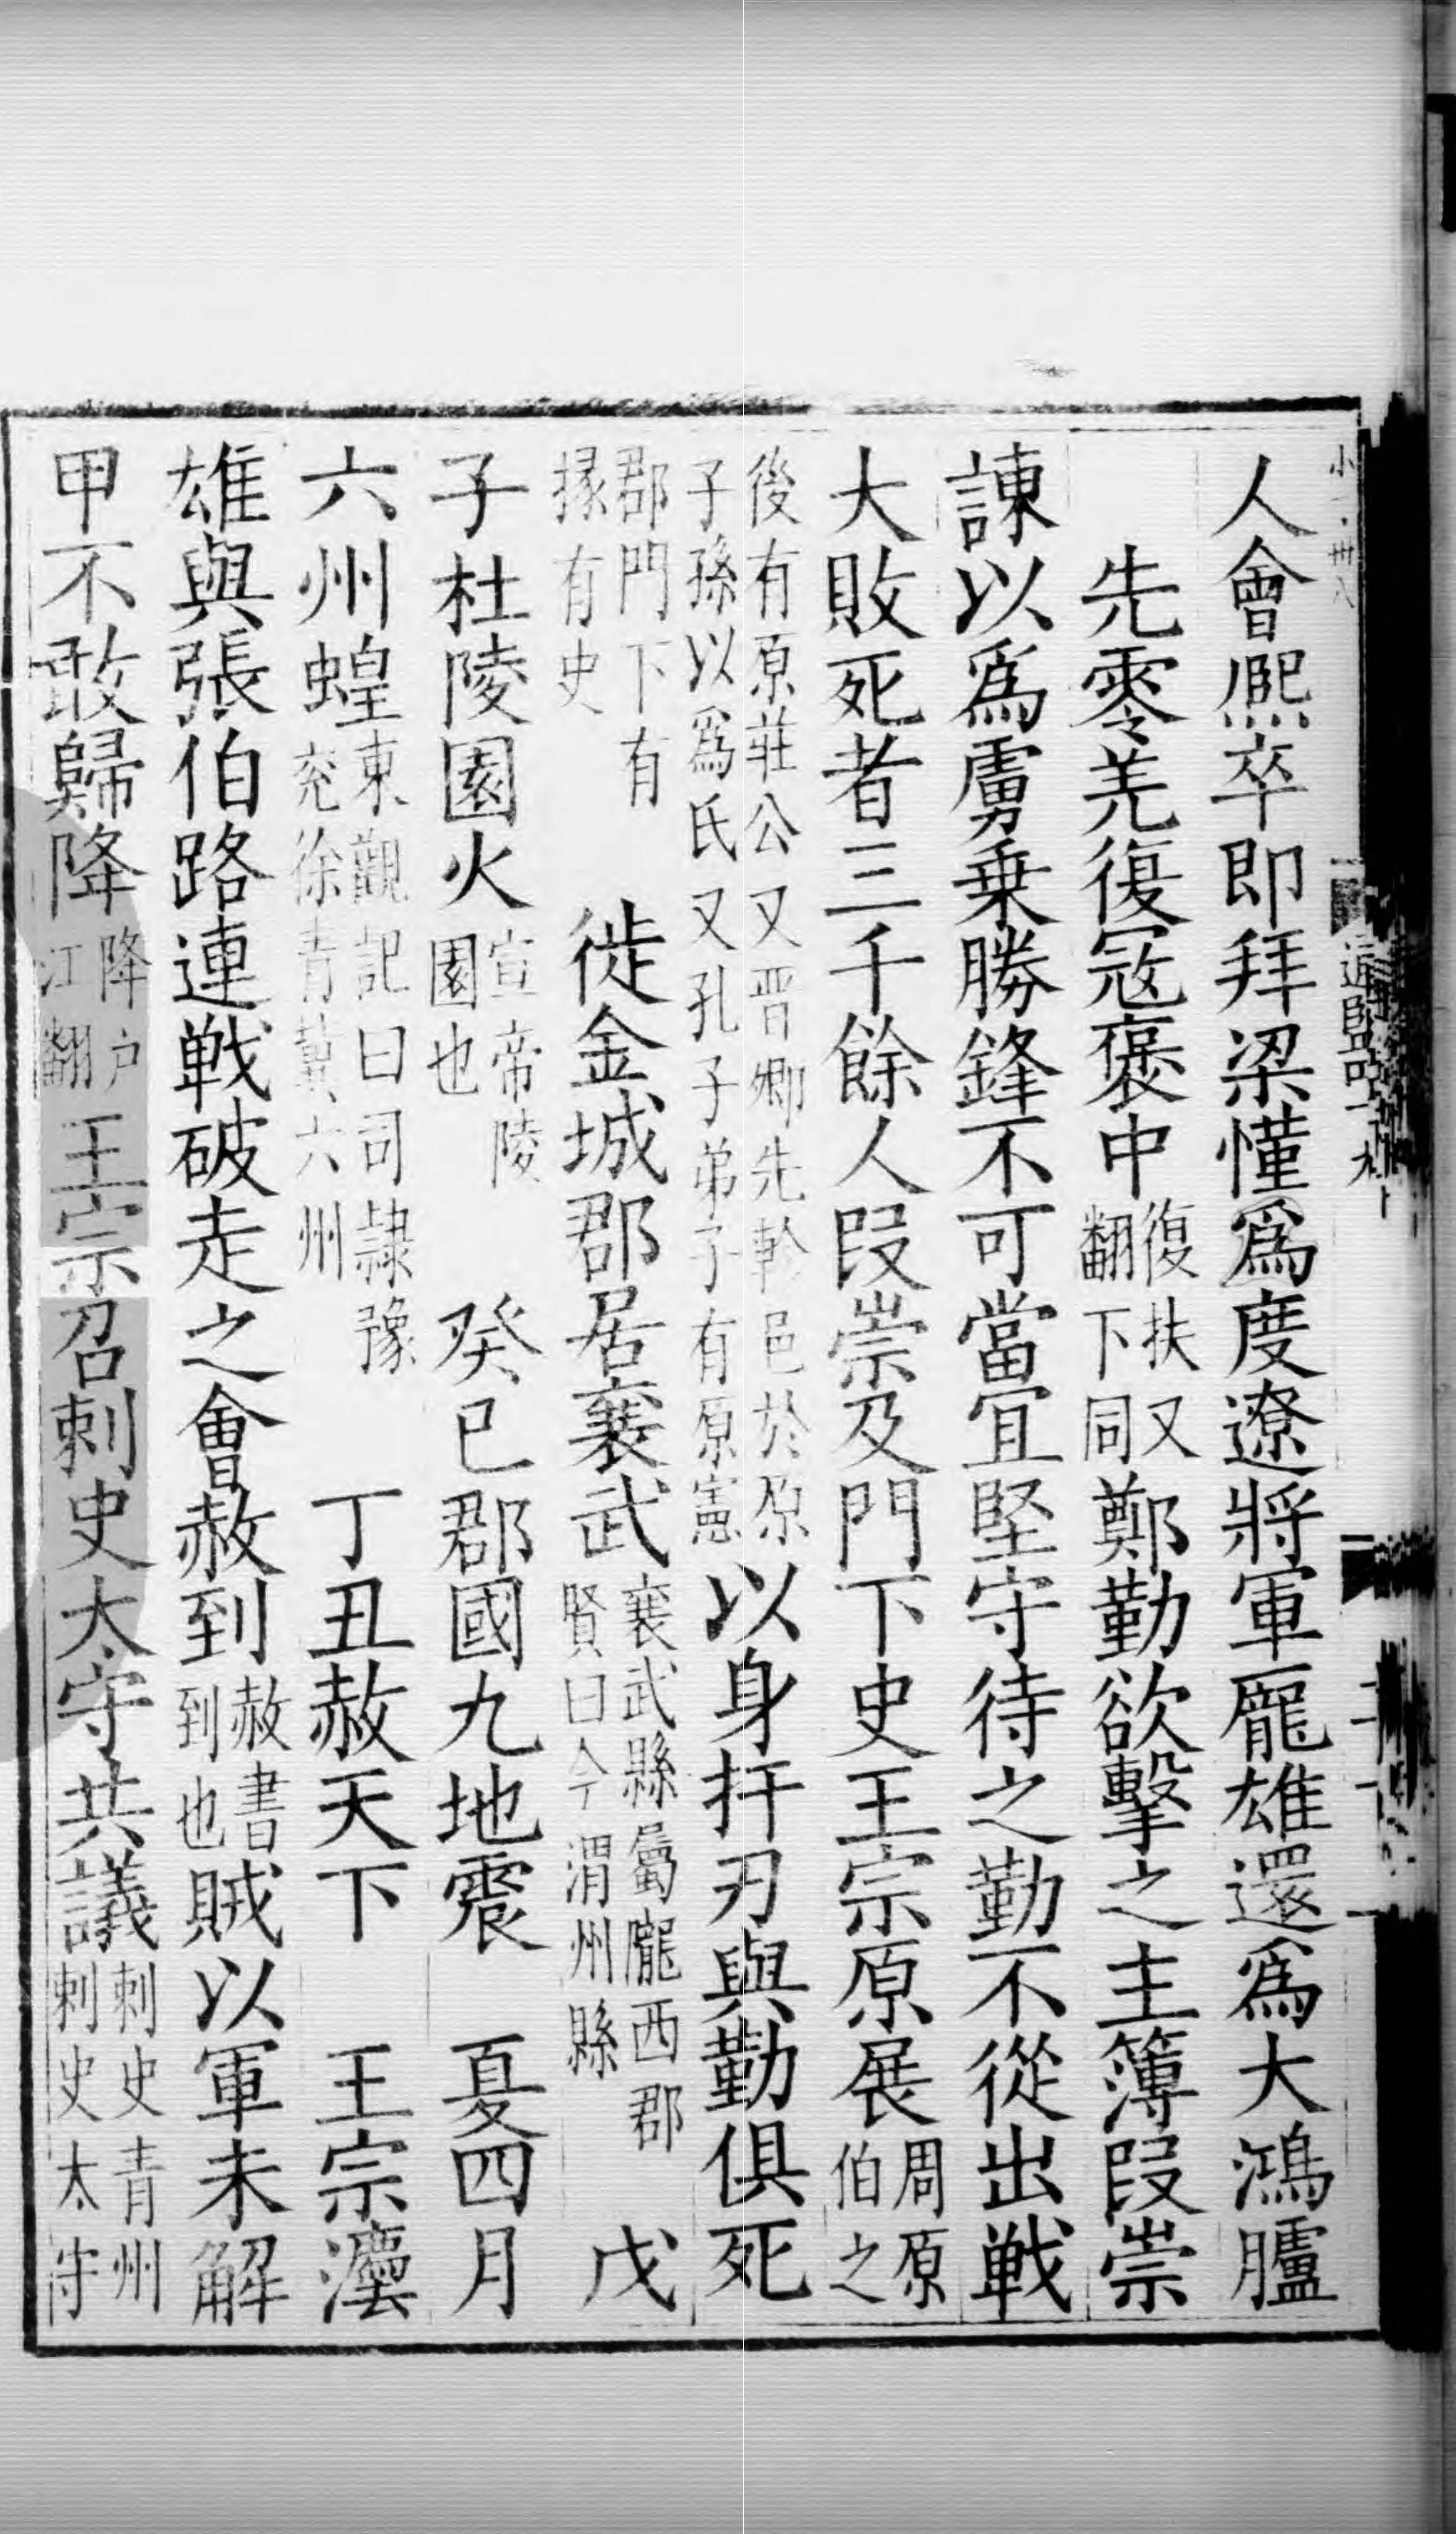 人會熙卒即拜梁慬爲度遼將軍龐雄還爲大鴻臚
先零羌復寇褒中復扶又翻下同鄭勤欲擊之主簿段崇
諫以爲虜乗勝鋒不可當宜堅守待之勤不從出戰
大敗死者三千餘人段崇及門下史王宗原展周原伯之
後有原莊公又晋卿先軫邑於原子孫以爲氏又孔子弟子有原憲以身扞刃與勤俱死
郡門下有掾有史徙金城郡居襄武襄武縣屬隴西郡賢曰今渭州縣戊
子杜陵園火宣帝陵園也癸巳郡國九地震夏四月
六州蝗東觀記曰司隷豫兖徐青冀六州丁丑赦天下王宗灋
雄與張伯路連戰破走之會赦到赦書到也賊以軍未解
甲不敢歸降降户江翻王宗召刺史太守共議刺史青州刺史太守